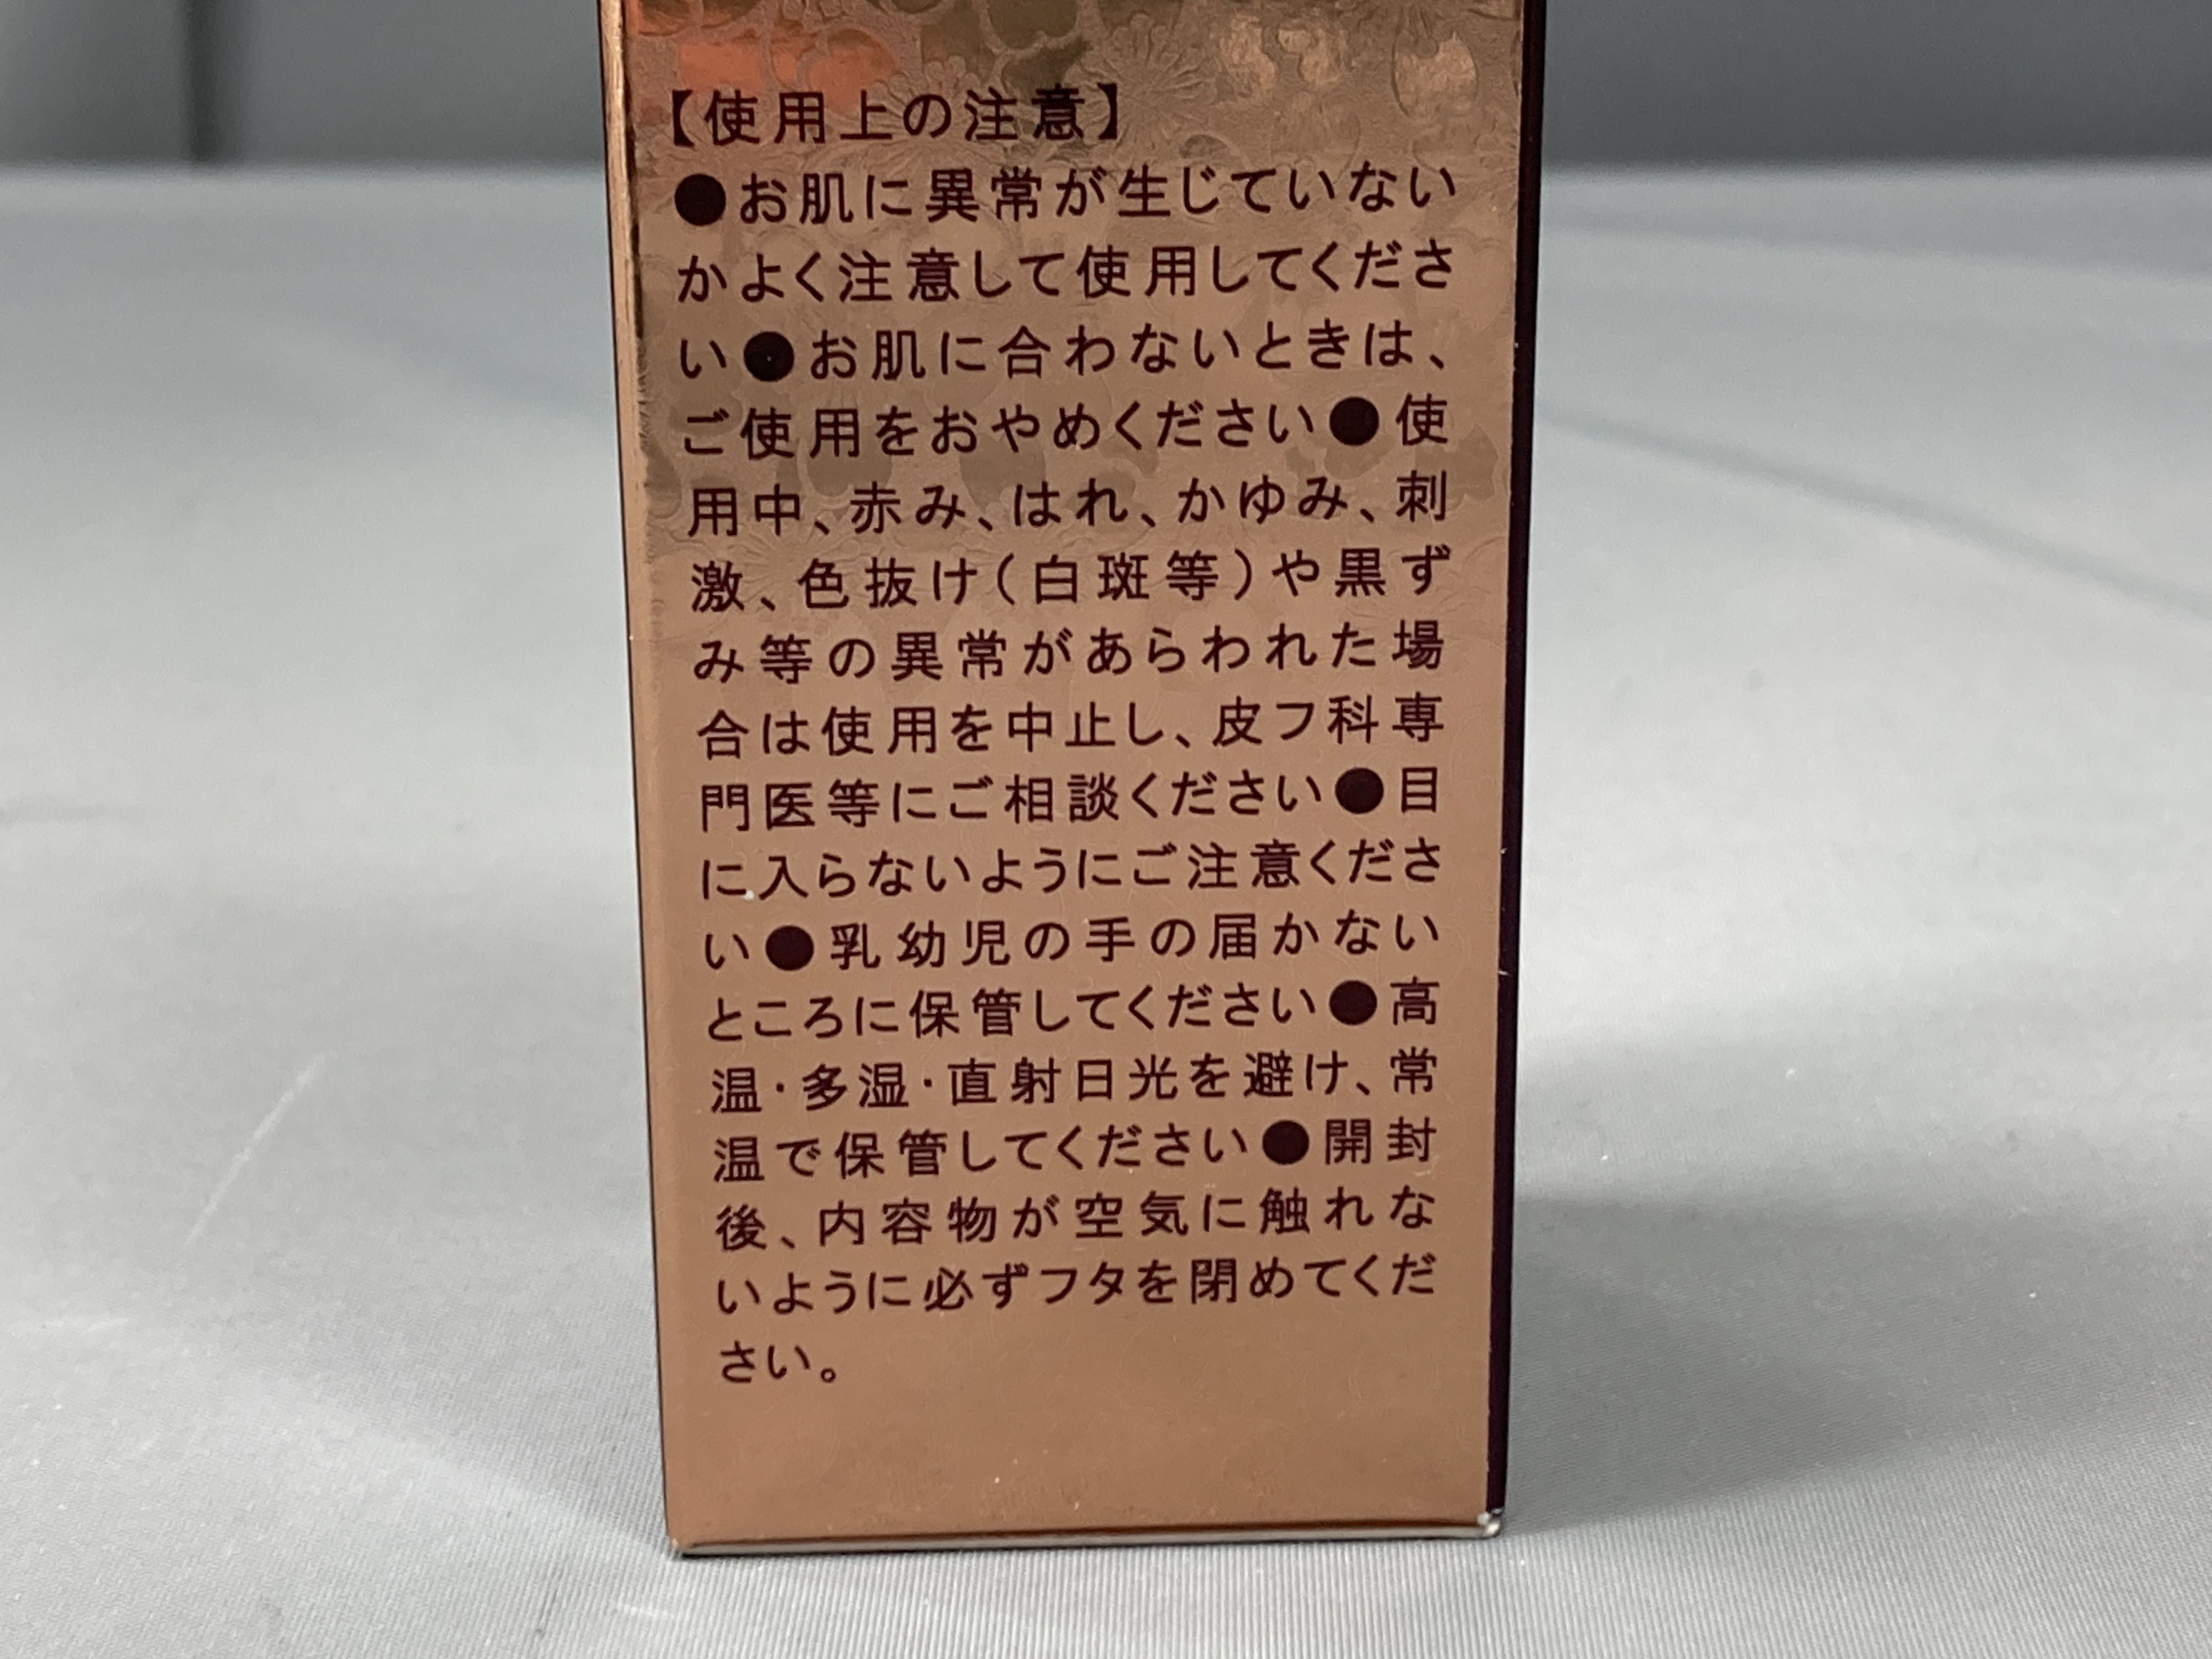 【使用上の注意】
●お肌に異常が生じていない
かよく注意して使用してくださ
い●お肌に合わないときは、
ご使用をおやめください●使
用中、赤み、はれ、かゆみ、刺
激、色抜け（白斑等）や黒ず
み等の異常があらわれた場
合は使用を中止し、皮フ科専
門医等にご相談ください●目
に入らないようにご注意くださ
い●乳幼児の手の届かない
ところに保管してください●高
温・多湿・直射日光を避け、常
温で保管してください●開封
後、内容物が空気に触れな
いように必ずフタを閉めてくだ
さい。